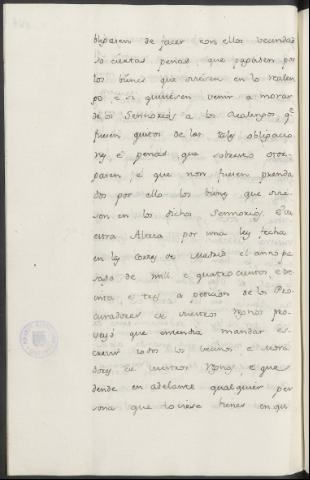 bligasen de facer con ellos vecindad
so ciertas penas, que pagasen por
los bienes que oviesen en lo realen
go, e si quisiesen venir a morar
de los Sennorios a los Realengos, q.e
fuesen quitos de las tales obligacio
nes, e penas, que sobre esto otor
garen, e que non fuesen prenda
dos por ello los bienes que ovie
sen en los dichos Sennorios, e vu
estra Alteza por una ley fecha
en las Cortes de Madrid el anno pa
sado de mil e quatrocientos, e tre
inta, e tres, a peticion de los Pro
curadores de vuestros Regnos pro
veyó que entendia mandar es
crevir todos los vecinos e mora
dores de vuestros Regnos, e que
dende en adelante qualquier per
sona que toviese bienes en qu